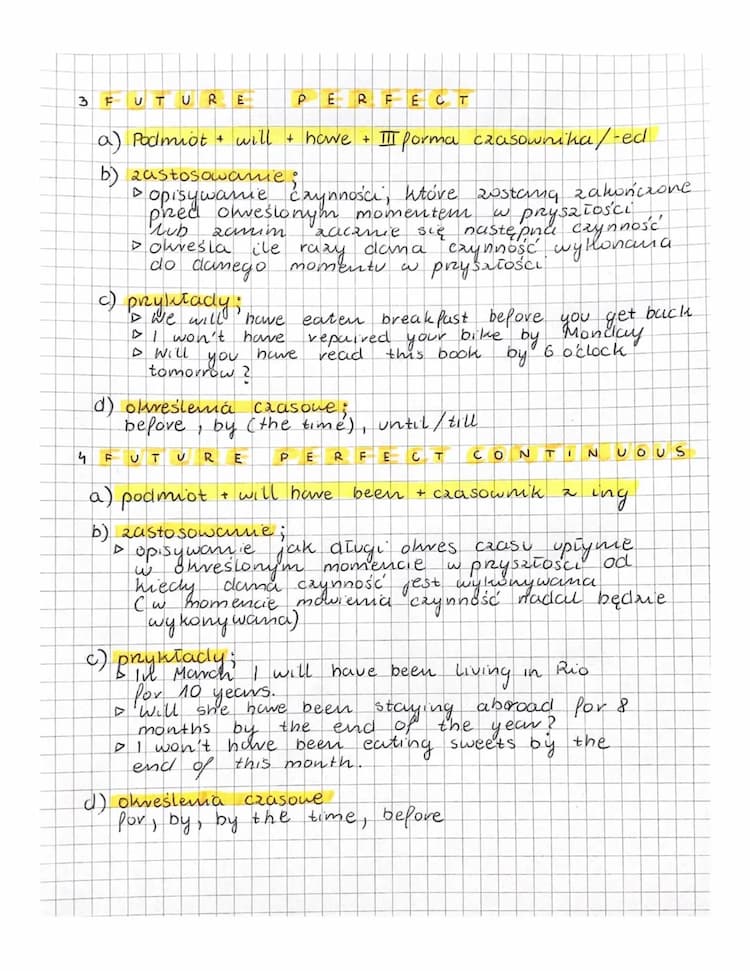 3 FUTURE PERFECT
a) Podmiot + will + have + III forma czasownika/-ed
b) zastosowanie;
▷ opisywanie czynności, które zostaną zakończone
przed określonym momentem w przyszłości
lub zanim zacznie się następna czynność
▷ określa ile razy dana czynność wykonana
do danego momentu w przyszłości
c) przykłady;
▷ We will have eaten breakfast before you get back
▷ I won't have repaired your bike by Monday
▷ Will you have read this book by 6 o'clock
tomorrow?
d) określenia czasowe;
before, by (the time), until/till
4 FUTURE PERFECT CONTINUOUS
a) podmiot + will have been + czasownik z ing
b) zastosowanie;
▷ opisywanie jak długi okres czasu upłynie
w określonym momencie w przyszłości od
kiedy dana czynność jest wykonywana
(w momencie mówienia czynność nadal będzie
wykonywana)
c) przykłady;
▷ March I will have been living in Rio
for 10 years.
▷ Will she have been staying abroad for 8
months by the end of the year?
▷ I won't have been eating sweets by the
end of this month.
d) określenia czasowe
for, by, by the time, before